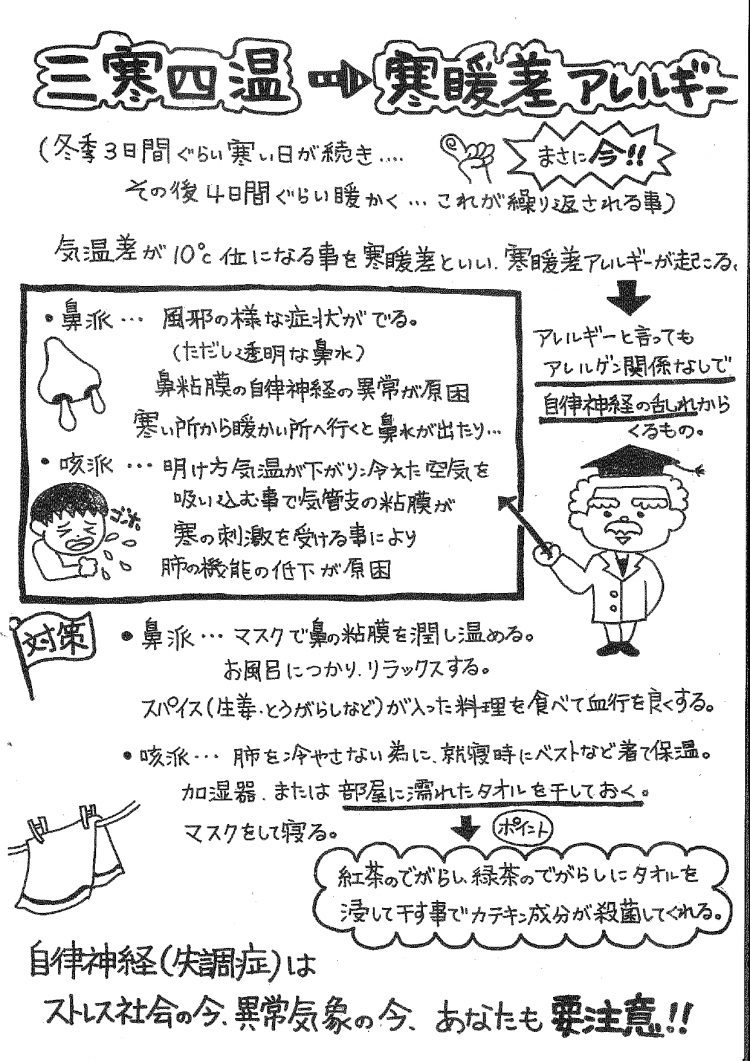 三寒四温 ➡ 寒暖差アレルギー
(冬季3日間ぐらい寒い日が続き....
まさに今!!
その後4日間ぐらい暖かく...これが繰り返される事)
気温差が10℃位になる事を寒暖差といい、寒暖差アレルギーが起こる。
・鼻派… 風邪の様な症状がでる。
(ただし透明な鼻水)
鼻粘膜の自律神経の異常が原因
寒い所から暖かい所へ行くと鼻水が出たり…
・咳派 … 明け方気温が下がり冷えた空気を
ゴホゴホ
吸い込む事で気管支の粘膜が
寒の刺激を受ける事により
肺の機能の低下が原因
アレルギーと言っても
アレルゲン関係なしで
自律神経の乱れから
くるもの。
対策
・鼻派… マスクで鼻の粘膜を潤し温める。
お風呂につかり、リラックスする。
スパイス(生姜・とうがらしなど)が入った料理を食べて血行を良くする。
・咳派… 肺を冷やさない為に、就寝時にベストなど着て保温。
加湿器、または部屋に濡れたタオルを干しておく。
マスクをして寝る。
ポイント
紅茶のでがらし、緑茶のでがらしにタオルを
浸して干す事でカテキン成分が殺菌してくれる。
自律神経(失調症)は
ストレス社会の今、異常気象の今、あなたも要注意!!